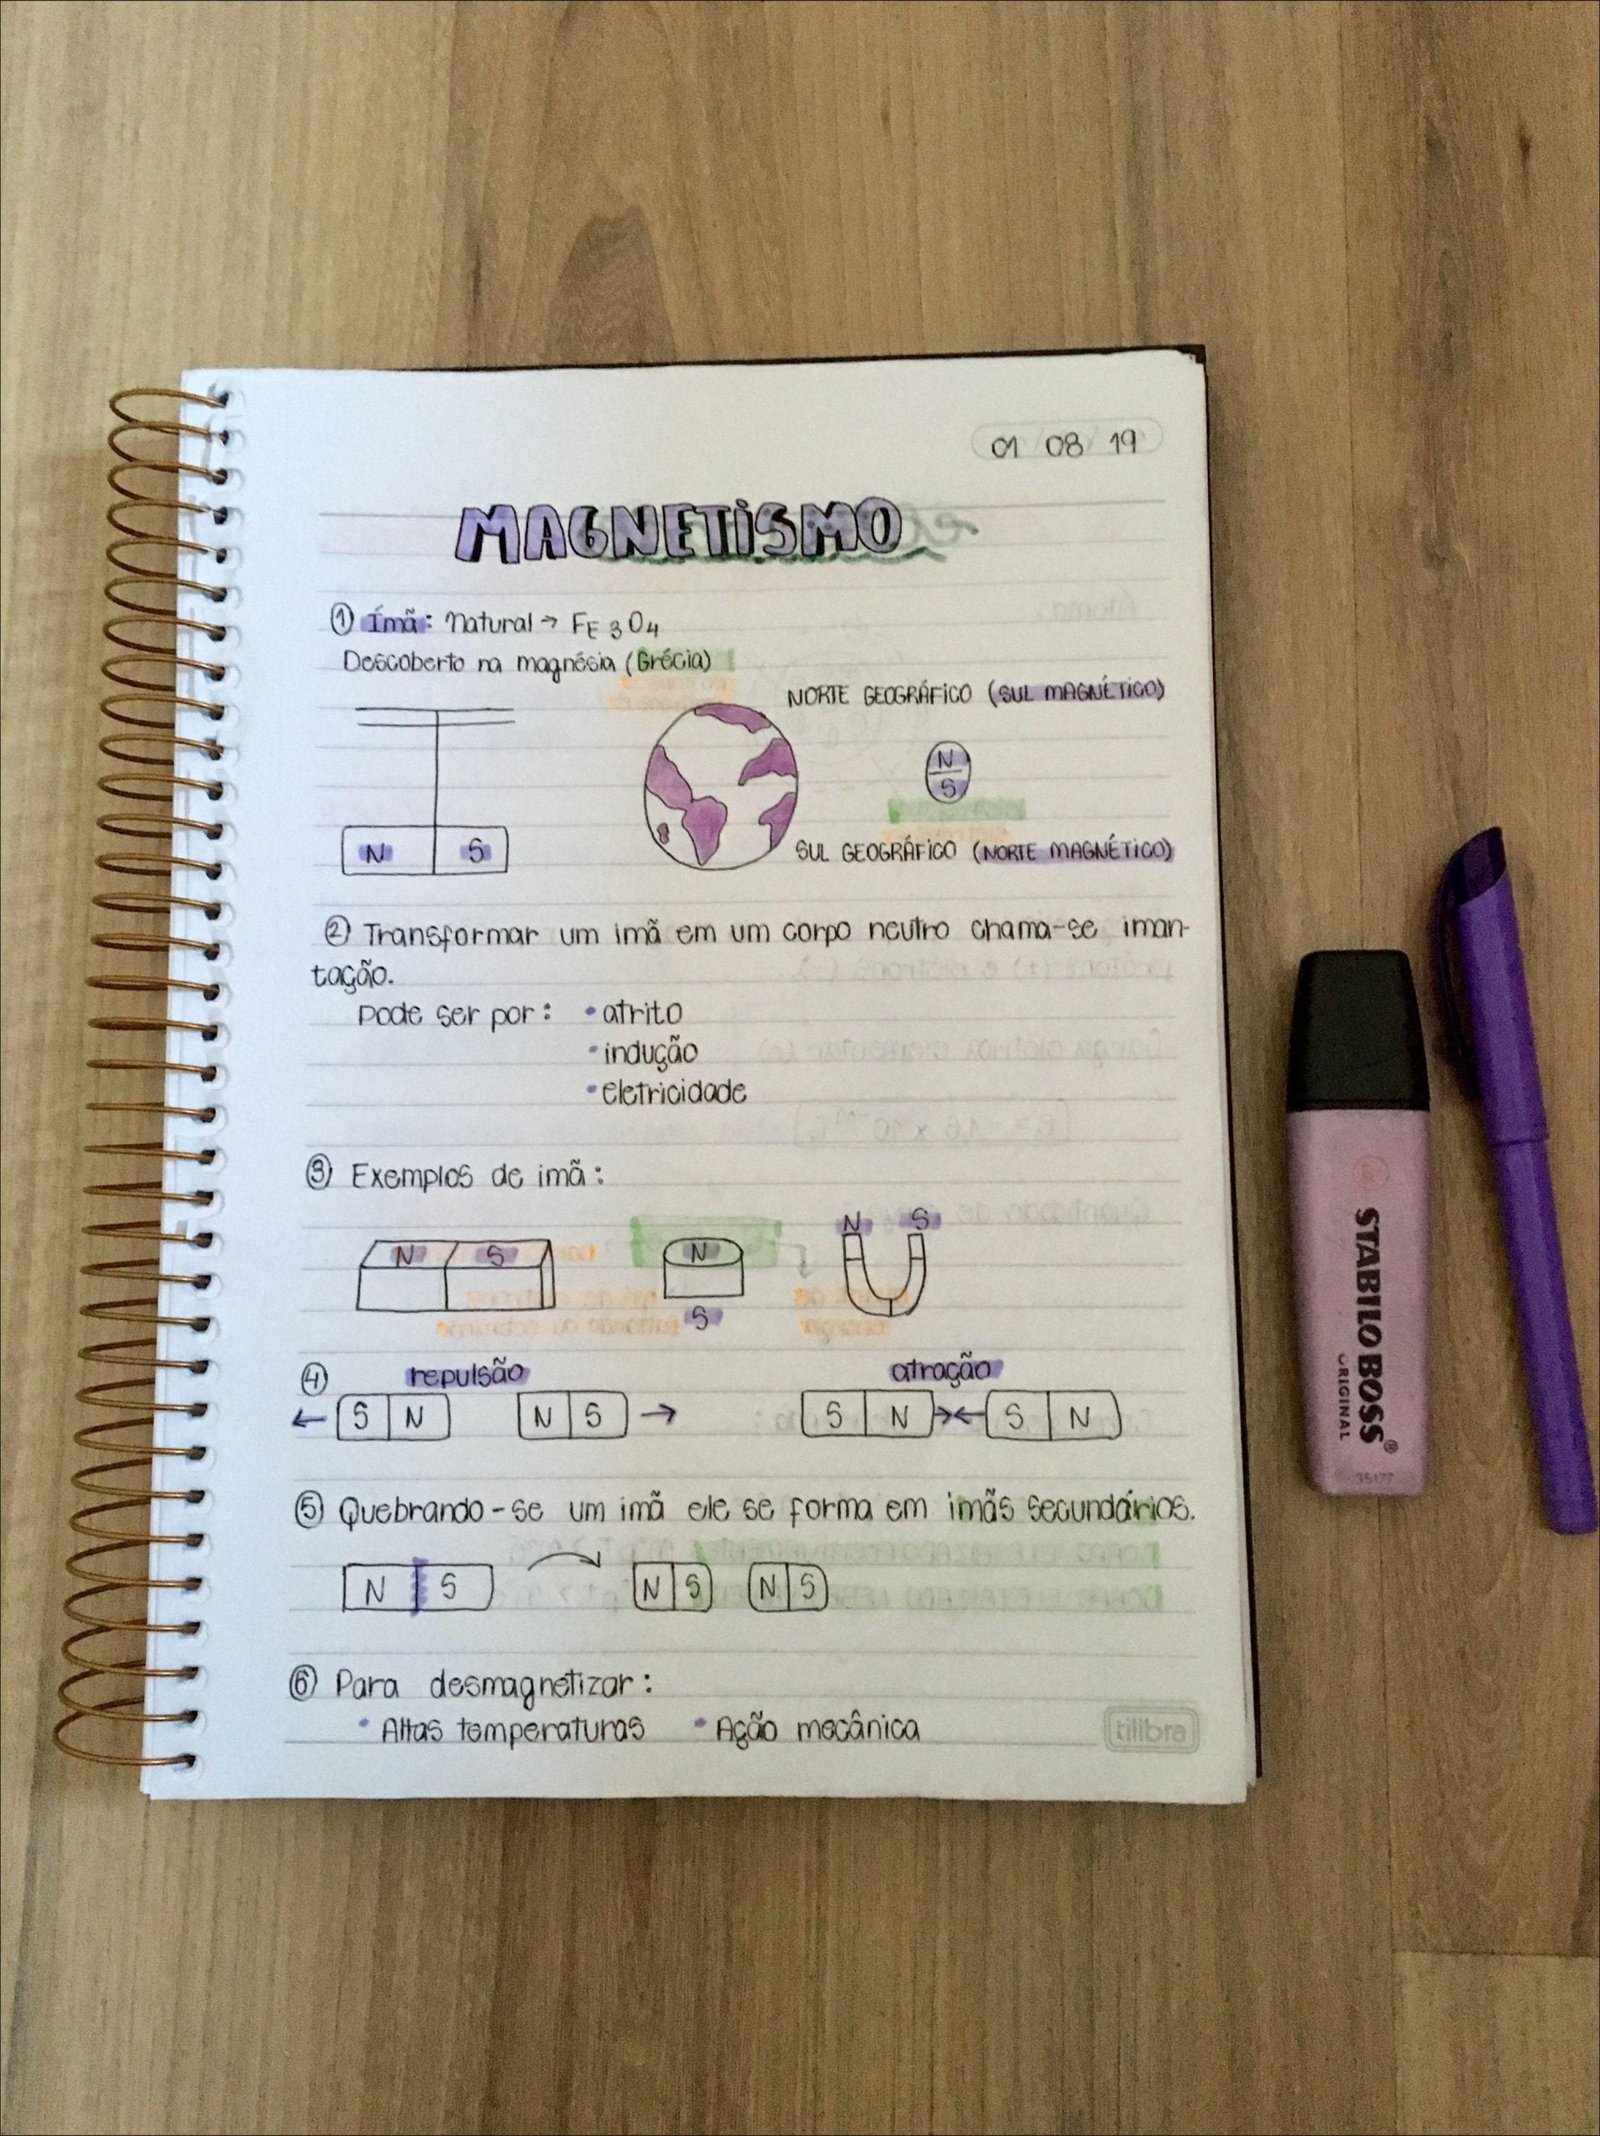 01 08 19
MAGNETiSMO
① Ímã: Natural → FE3O4
Descoberto na magnésia (Grécia)
NORTE GEOGRÁFiCO (SUL MAGNÉTiCO)
N
S
N S
SUL GEOGRÁFiCO (NORTE MAGNÉTiCO)
② Transformar um imã em um corpo neutro chama-se iman-
tação.
Pode ser por: • atrito
• indução
• eletricidade
③ Exemplos de imã:
N S
N S
N
S
④ repulsão atração
← S N N S → S N →← S N
⑤ Quebrando-se um imã ele se forma em imãs secundários.
N S N S N S
⑥ Para desmagnetizar:
• Altas temperaturas • Ação mecânica
tilibra
STABILO BOSS®
ORIGINAL